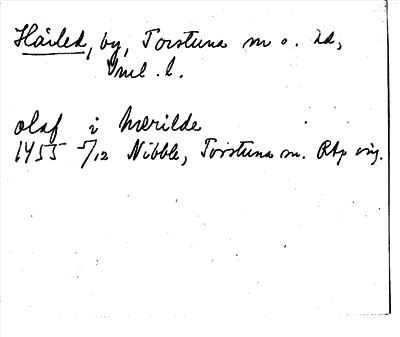 Härled, by, Torstuna sn o. hd,
Vml. l.
olaf i hærilde
1455 5/12 Nibble, Torstuna sn. RAp orig.